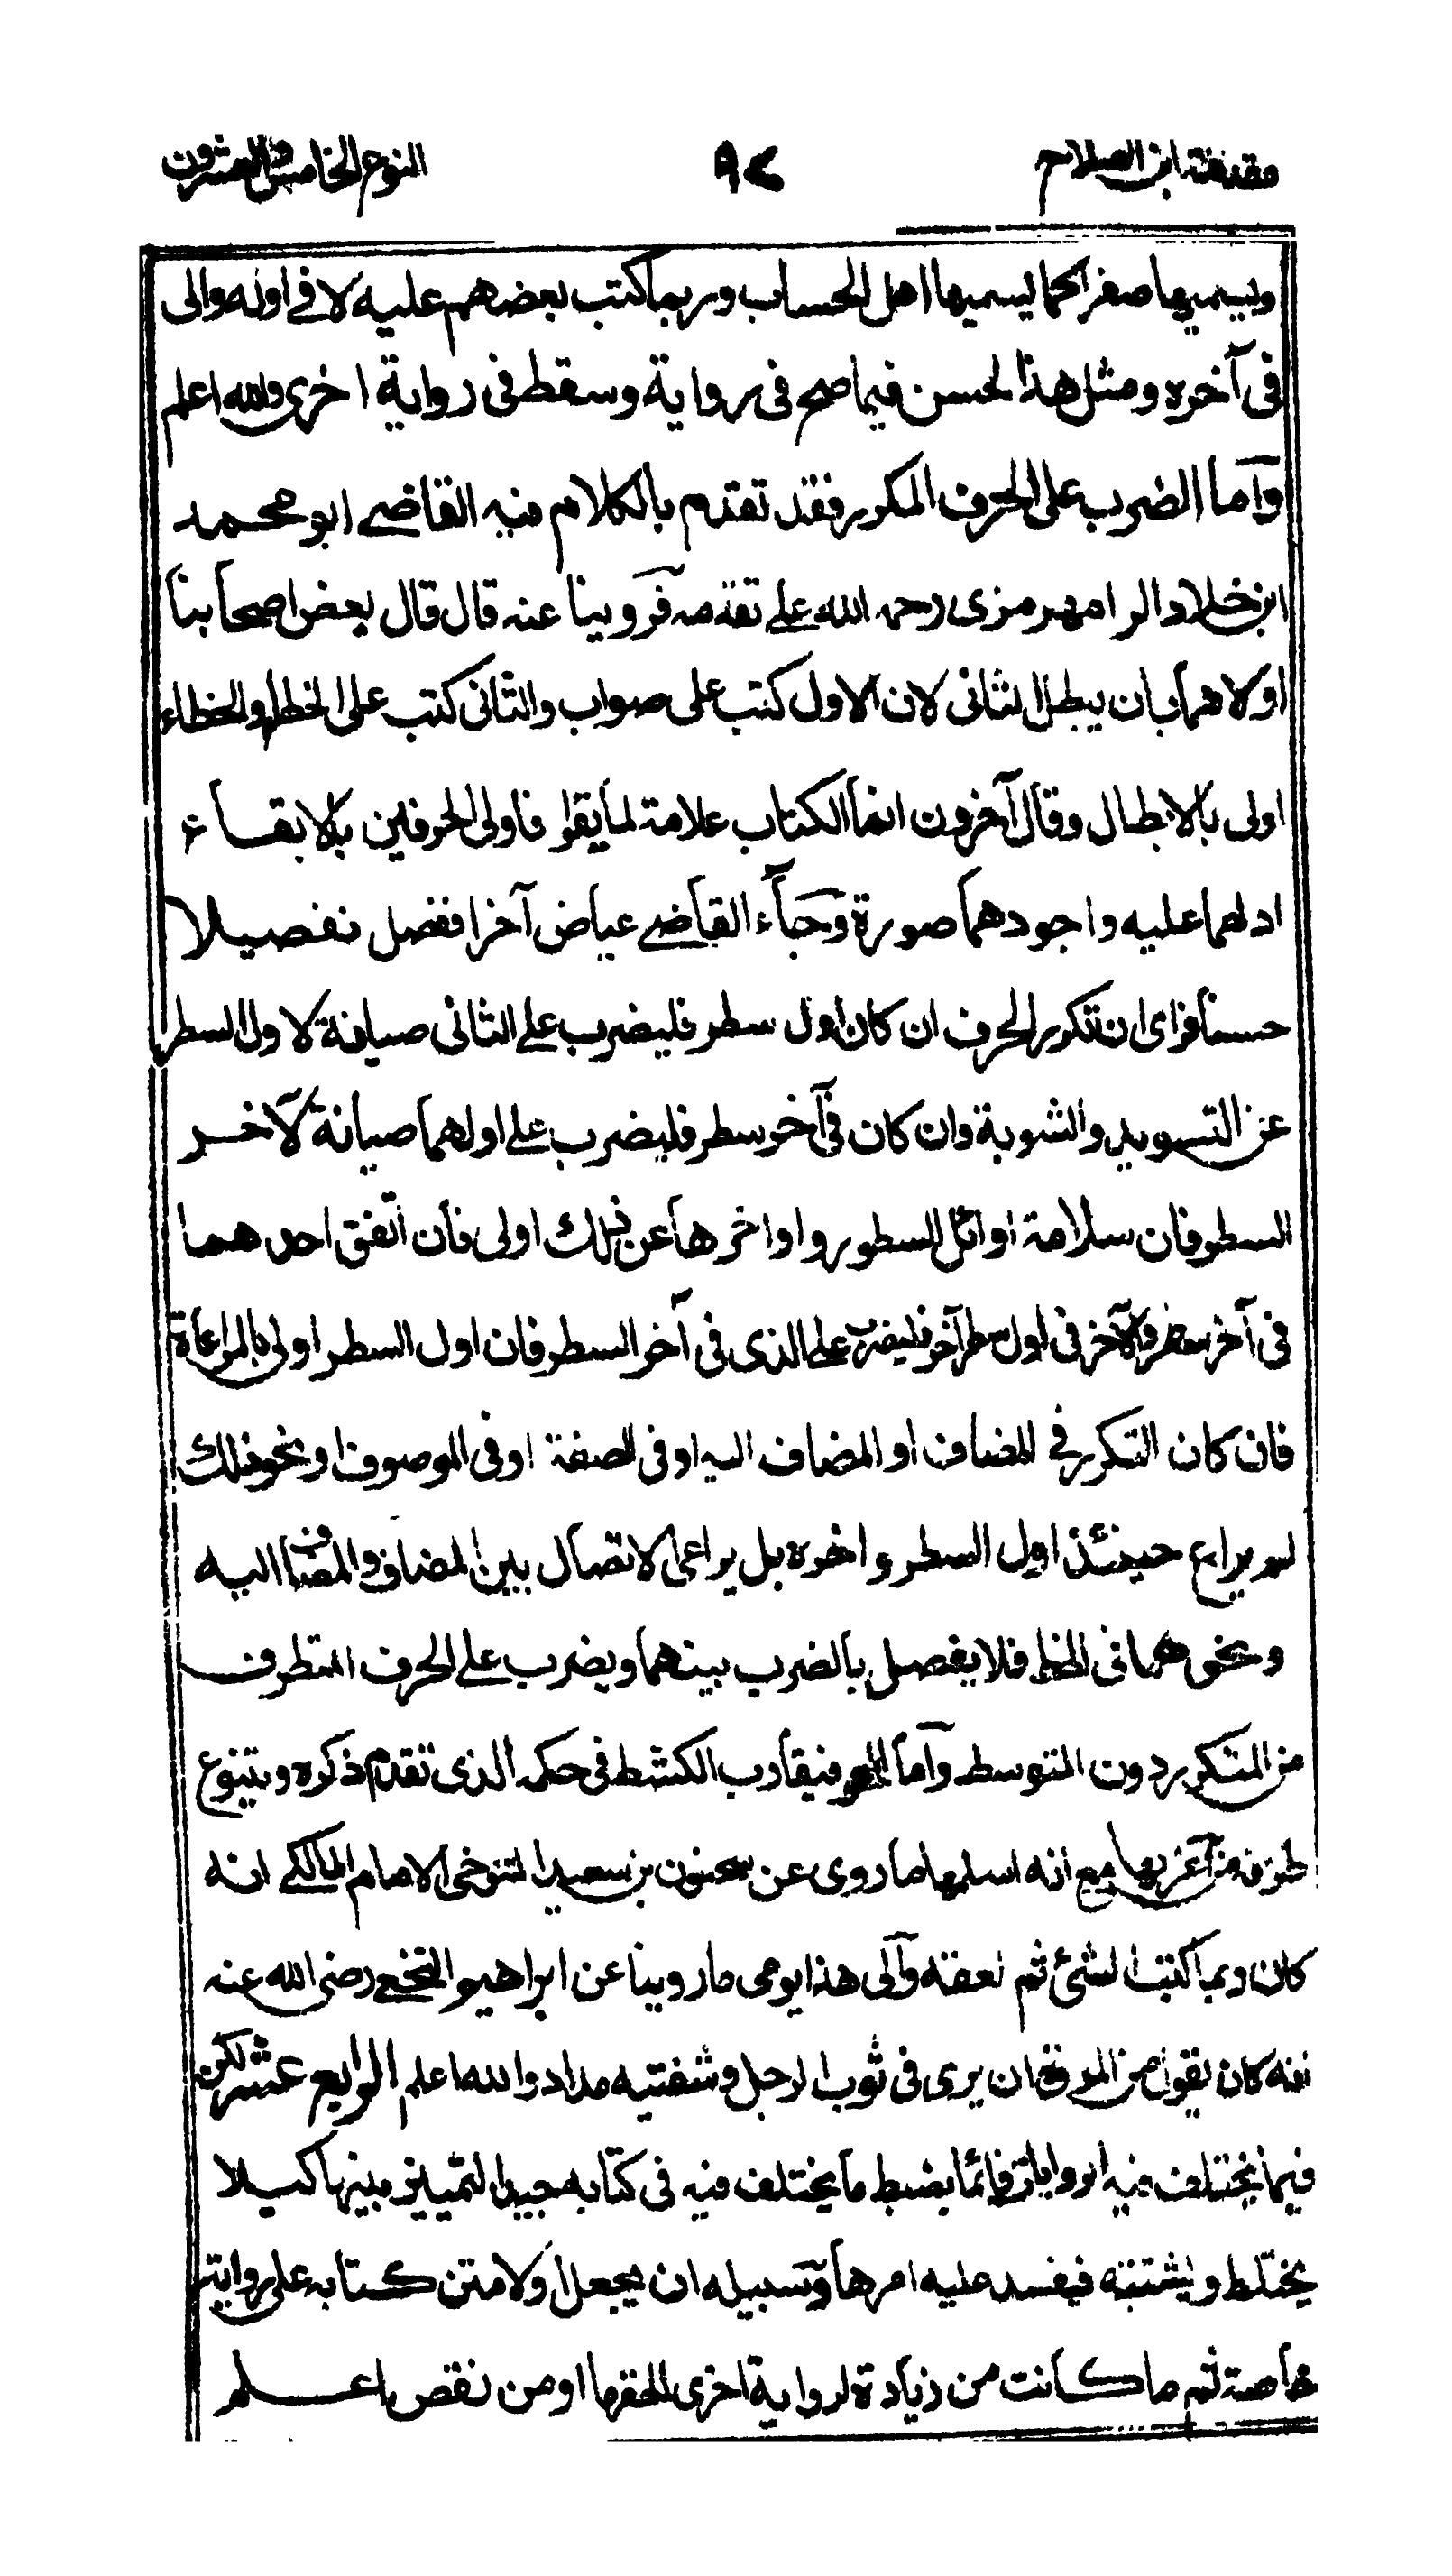 مقدمة ابن الصلاح ٩٢ النوع الخامس والعشرون
ويسميها صفرا كما يسميها اهل الحساب وربما كتب بعضهم عليه لا في اوله والى
فى آخره ومثل هذا لحسن فيما صح فى رواية وسقط فى رواية اخرى والله اعلم
وآما الضرب على الحرف المكرر فقد تقدم بالكلام فيه القاضى ابو محمد
ابن خلاد الرامهرمزى رحمه الله على تقدمه فروينا عنه قال قال بعض اصحابنا
اولاهما بان يبطل الثانى لان الاول كتب على صواب والثانى كتب على الخطاء والخطاء
اولى بالابطال وقال آخرون انما الكتاب علامة لما يقرا فاولى الحرفين بالابقاء
ادلهما عليه واجودهما صورة وجاء القاضى عياض آخرا ففصل تفصيلا
حسنا فراى ان تكرر الحرف ان كان اول سطر فليضرب على الثانى صيانة لاول السطر
عن التسويد والشوبة وان كان فى آخر سطر فليضرب على اولهما صيانة لآخر
السطر فان سلامة اوائل السطور واواخرها عن ذلك اولى فان اتفق احدهما
فى آخر سطر والآخر فى اول سطر آخر فليضرب على الذى فى آخر السطر فان اول السطر اولى بالمراعاة
فان كان التكرر فى المضاف او المضاف اليه او فى الصفة او فى الموصوف او نحو ذلك
لم يراع حينئذ اول السطر واخره بل يراعى الاتصال بين المضاف والمضاف اليه
ونحوهما فى الخط فلا يفصل بالضرب بينهما ويضرب على الحرف المتطرف
من المتكرر دون المتوسط وآما المحو فيقارب الكشط فى حكمه الذى تقدم ذكره ويتنوع
طرقه ومن آغربها مع انه اسلمها ما روى عن سحنون بن سعيد التنوخى الامام المالكى انه
كان ربما كتب الشئ ثم لعقه وآلى هذا يومى ما روينا عن ابراهيم النخعى رضى الله عنه
انه كان يقول من المروة ان يرى فى ثوب الرجل وشفتيه مداد والله اعلم الرابع عشر ليكن
فيما يختلف فيه الروايات قائما بضبط ما يختلف فيه فى كتابه جيد التمييز بينها كيلا
يختلط ويشتبه فيفسد عليه امرها وسبيله ان يجعل اولا متن كتابه على رواية
خاصة ثم ما كانت من زيادة لرواية اخرى الحقها او من نقص اعلم